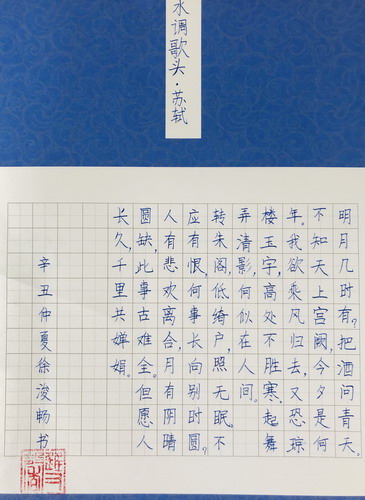 水调歌头·苏轼
明月几时有?把酒问青天。
不知天上宫阙,今夕是何
年。我欲乘风归去,又恐琼
楼玉宇,高处不胜寒。起舞
弄清影,何似在人间。
转朱阁,低绮户,照无眠。不
应有恨,何事长向别时圆?
人有悲欢离合,月有阴晴
圆缺,此事古难全。但愿人
长久,千里共婵娟。
辛丑仲夏徐浚畅书